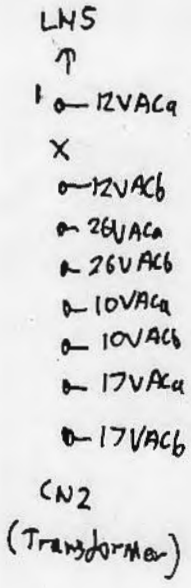 LN5
↑
1 12VACa
X
12VACb
26VACa
26VACb
10VACa
10VACb
17VACa
17VACb
CN2
(Transformer)